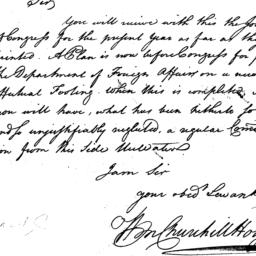 Sir
You will receive with this the Jou
Congress for the present year as far as th
printed. A Plan is now before Congress for
the Department of Foreign Affairs on a
Mutual Footing. When this is completed,
you will have, what has been hitherto to
unjustifiably neglected, a regular Corres
ion from this side the Water
I am Sir
your obedt. Servant
Wm Churchill Hou